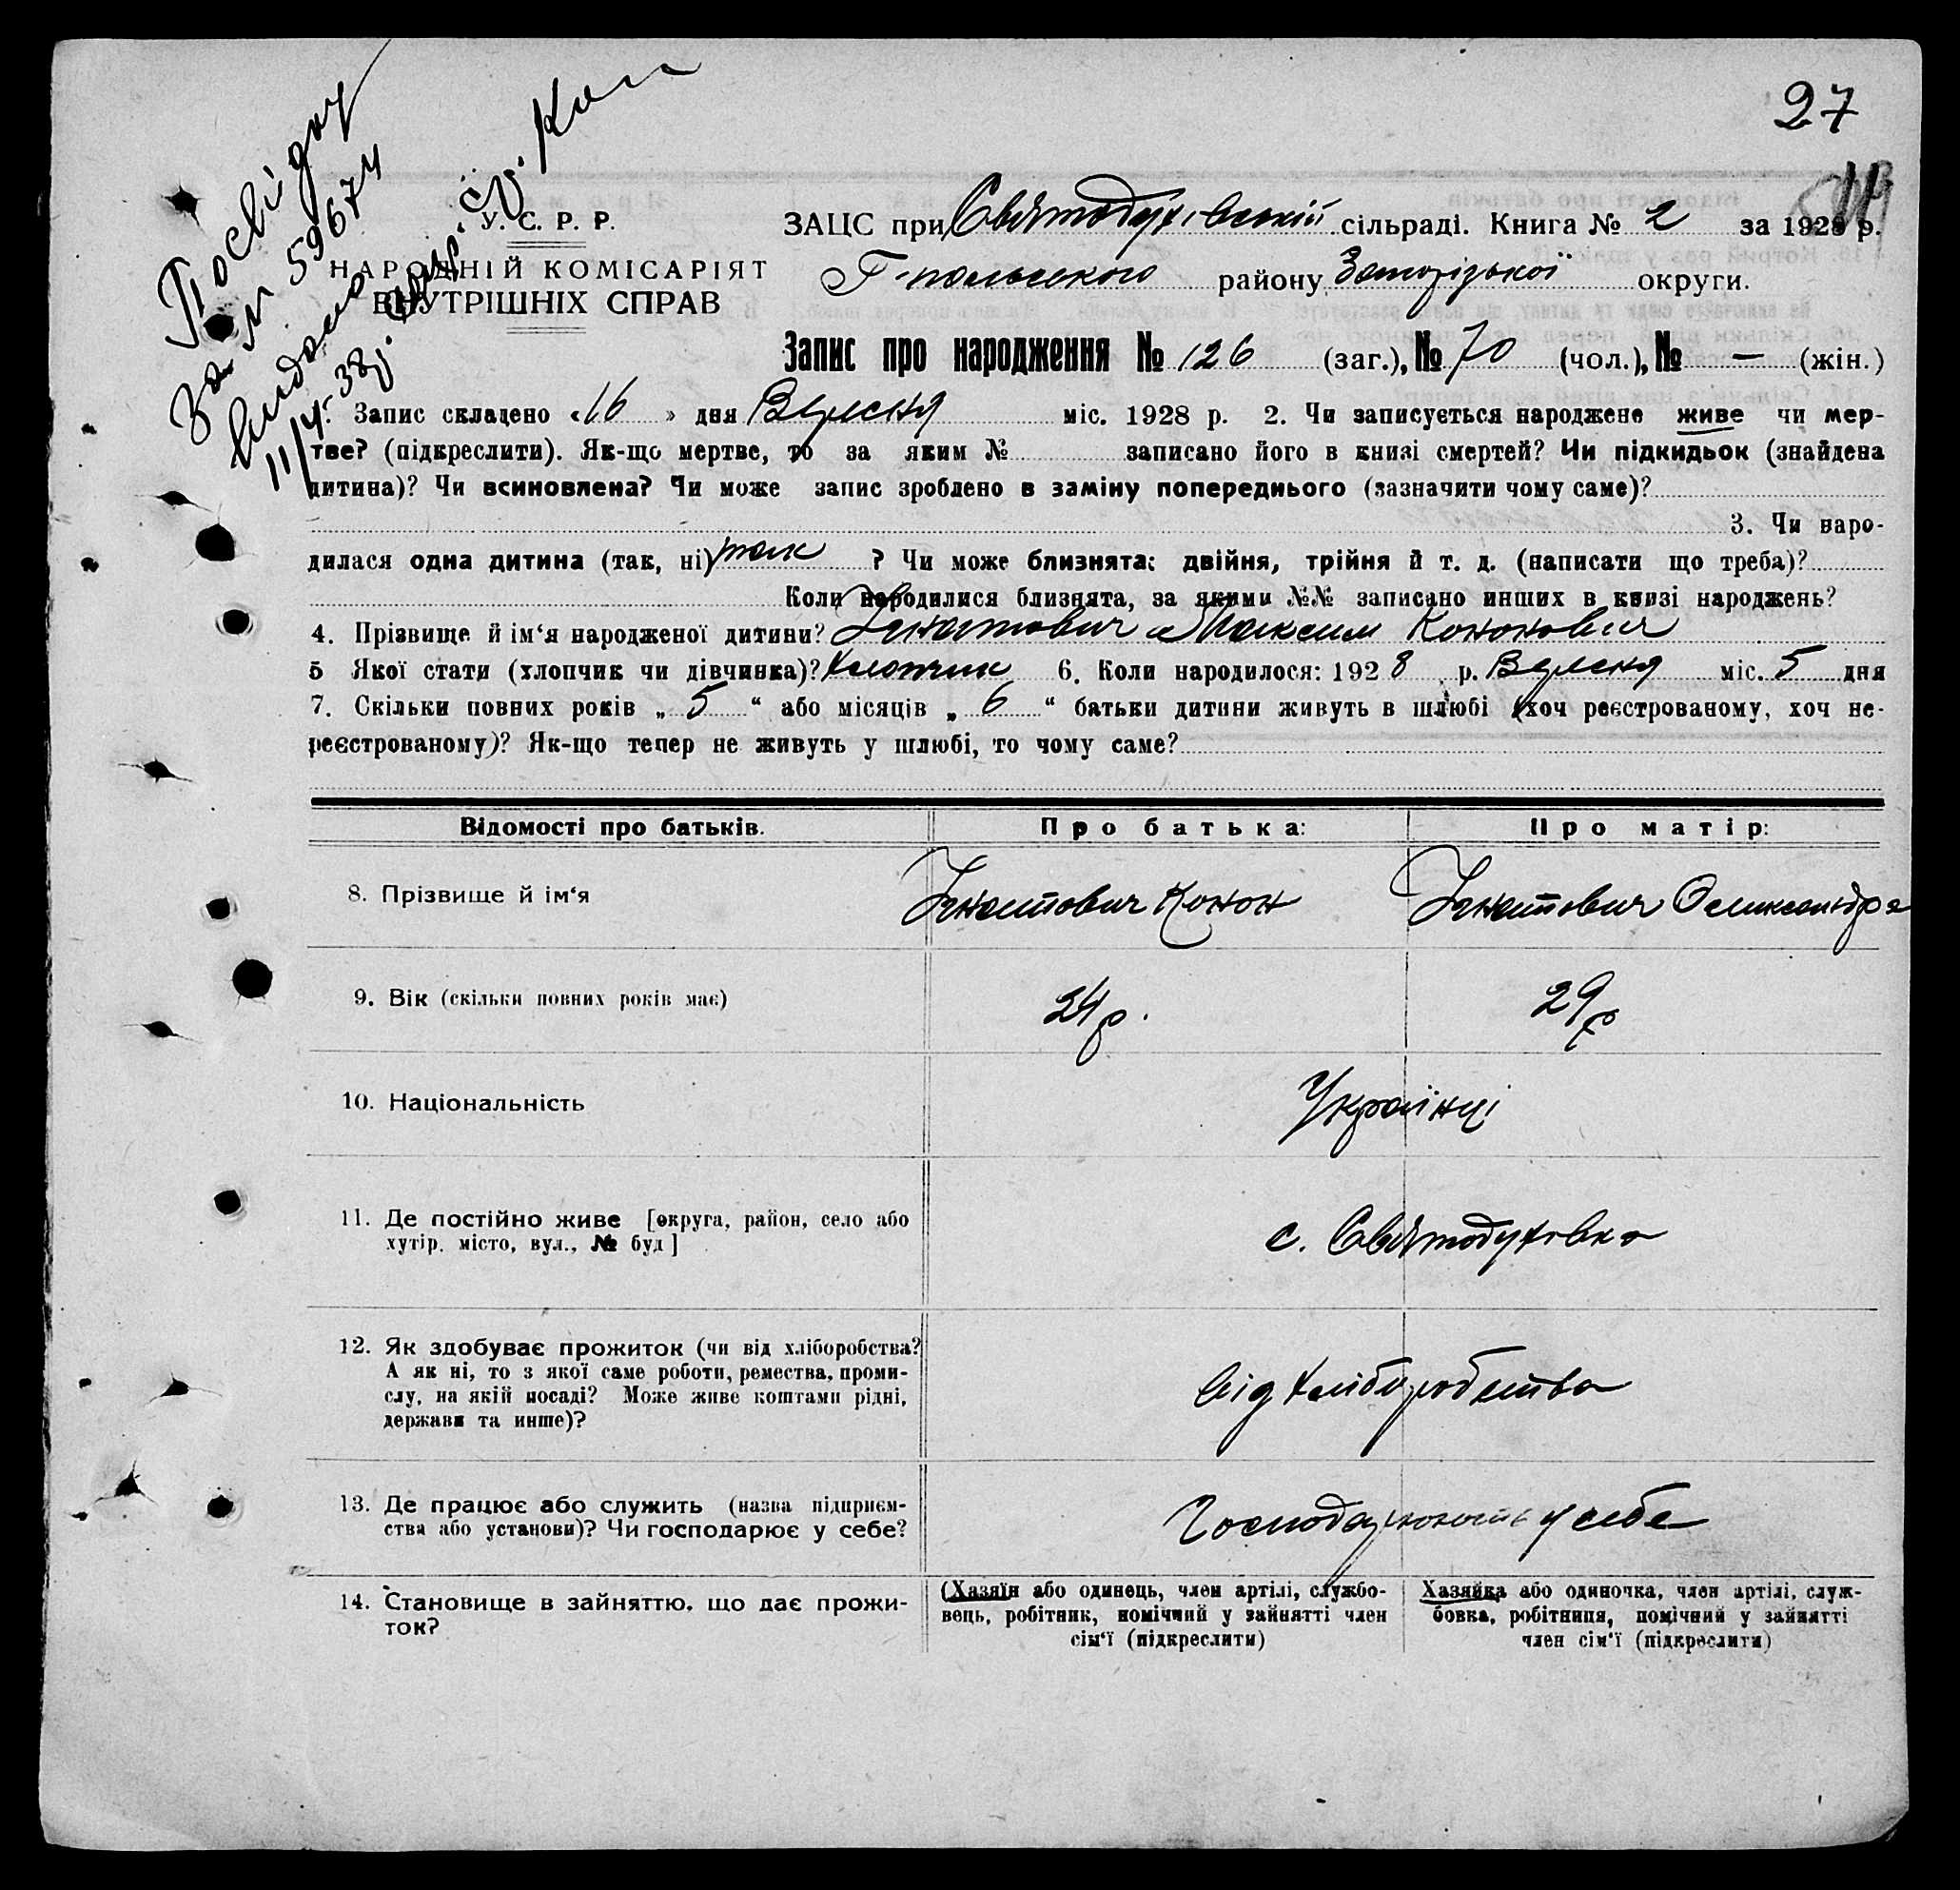 27
Посвідку
за № 596674
видано
11/V-38р.
У. С. Р. Р.
НАРОДНІЙ КОМІСАРІЯТ
ВНУТРІШНІХ СПРАВ
ЗАЦС при Святодухівській сільраді. Книга № 2 за 1928 р.
Г-польського району Запорізької округи.
Запис про народження № 126 (заг.), № 70 (чол.), № — (жін.)
1. Запис складено «16» дня Вересня міс. 1928 р. 2. Чи записується народжене живе чи мер-
тве? (підкреслити). Як-що мертве, то за яким № записано його в книзі смертей? Чи підкидьок (знайдена
дитина)? Чи всиновлена? Чи може запис зроблено в заміну попереднього (зазначити чому саме)?
3. Чи наро-
дилася одна дитина (так, ні) так ? Чи може близнята: двійня, трійня й т. д. (написати що треба)?
Коли народилися близнята, за якими №№ записано инших в книзі народжень?
4. Прізвище й ім‘я народженої дитини? Ігнатович Максим Кононович
5 Якої стати (хлопчик чи дівчинка)? Хлопчик 6. Коли народилося: 1928 р. Вересня міс. 5 дня
7. Скільки повних років „ 5 “ або місяців „ 6 “ батьки дитини живуть в шлюбі (хоч реєстрованому, хоч не-
реєстрованому)? Як-що тепер не живуть у шлюбі, то чому саме?
Відомості про батьків. Про батька: Про матір:
8. Прізвище й ім‘я Ігнатович Конон Ігнатович Олександра
9. Вік (скільки повних років має) 24 р. 29 р
10. Національність Українці
11. Де постійно живе [округа, район, село або
хутір, місто, вул., № буд] с. Святодухівка
12. Як здобуває прожиток (чи від хліборобства?
А як ні, то з якої саме роботи, ремества, проми-
слу, на якій посаді? Може живе коштами рідні,
держави та инше)? від хліборобства
13. Де працює або служить (назва підприєм-
ства або установи)? Чи господарює у себе? Господарюють у себе
14. Становище в зайняттю, що дає прожи-
ток?
(Хазяїн або одинець, член артілі, службо-
вець, робітник, помічний у зайнятті член
сім‘ї (підкреслити)
Хазяйка або одиночка, член артілі, служ-
бовка, робітниця, помічний у зайнятті
член сім‘ї (підкреслити)